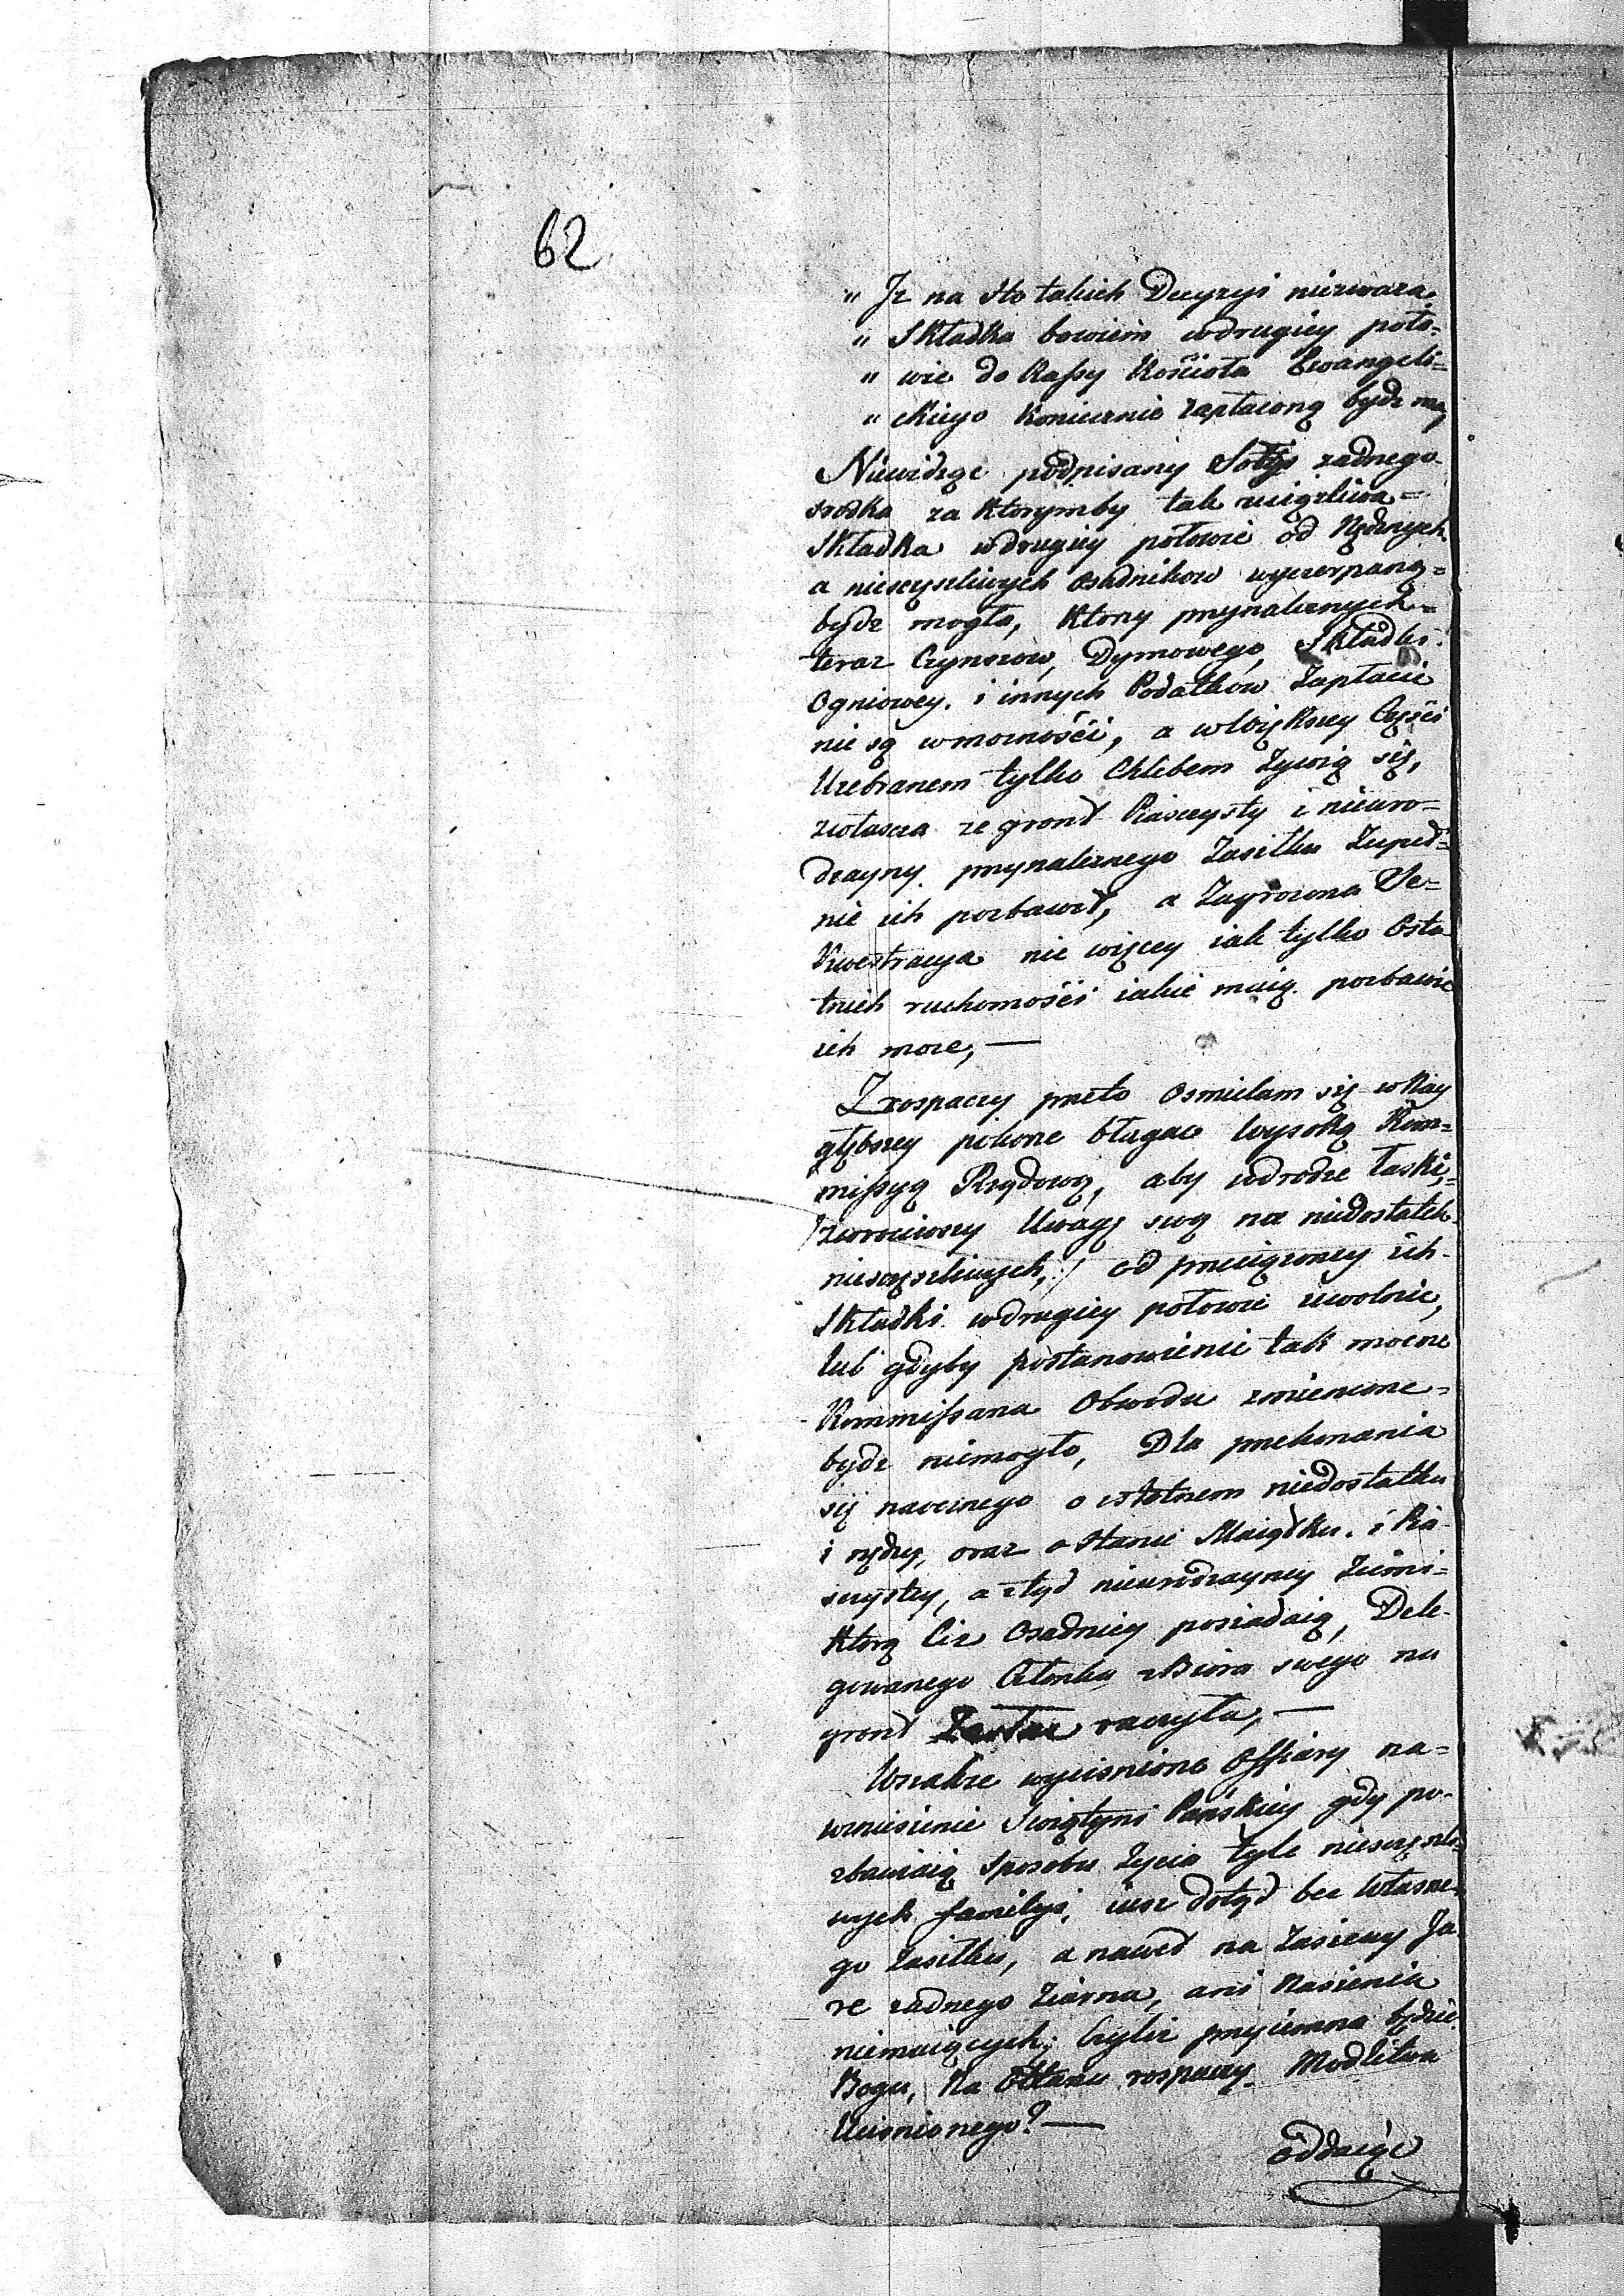 62
" Jz na sto takich Decyzyi niezwaza,
" Składka bowiem wdrugiey poło=
" wie do Kassy Kościoła Ewangeli=
" ckiego koniecznie zapłaconą bydz ma,
Niewidząc podpisany Sołtys zadnego
srodka za ktorymby tak uciążliwa=
Składka wdrugiey połowie od Nędznych
a niesczęsliwych osadnikow wyczerpaną=
bydz mogła, Ktorzy przynaleznych=
teraz Czynszow, Dymowego, Składki
Ogniowey, i innych Podatkow Zapłacic
nie są wmocności, a wwiększey Części
Uzebranem tylko Chlebem Zywią się,
zwłascza ze gront Piasczysty i nieuro=
dzayny przynaleznego Zasiłku Zupeł=
nie ich pozbawił, a Zagrozona Se=
kwestracya nic więcey iak tylko Osta
tnich ruchomości iakie maią pozbawic
ich moze, —
Z rospaczy przeto Osmielam się w Nay
głębszey pokorze błagac Wysoką Kom=
missyą Rządową, aby wdrodze łaski,
zwrociwszy Uwagę swą na niedostatek
niesczęsliwych, od przeciązoney ich
Składki wdrugiey połowie uwolnic,
lub gdyby postanowienie tak mocne
Kommissarza Obwodu zmienione=
bydz niemogło, Dla przekonania
się naocznego o istotnem niedostatku
i nędzy, oraz o stanie Maiątku i Pia
sczystey, a ztąd nieurodzayney Ziemi=
Ktorą Ciz Osadnicy posiadaią, Dele=
gowanego Członka zBiora swego na
gront raczyła, —
Wszakze wycisnione Offiary na=
wzniesienie Swiątyni Panskiey gdy po=
zbawiaią sposobu Zycia tyle niesczęsli=
wych familyi, iusz dotąd bez własne=
go Zasiłku, a nawed na Zasiewy Ja
re zadnego Ziarna, ani Nasienia
niemaiących; Czyliz przyiemna będzie
Bogu, Na Ołtarzu rospaczy Modlitwa
Ucisnionego? —
oddaiąc